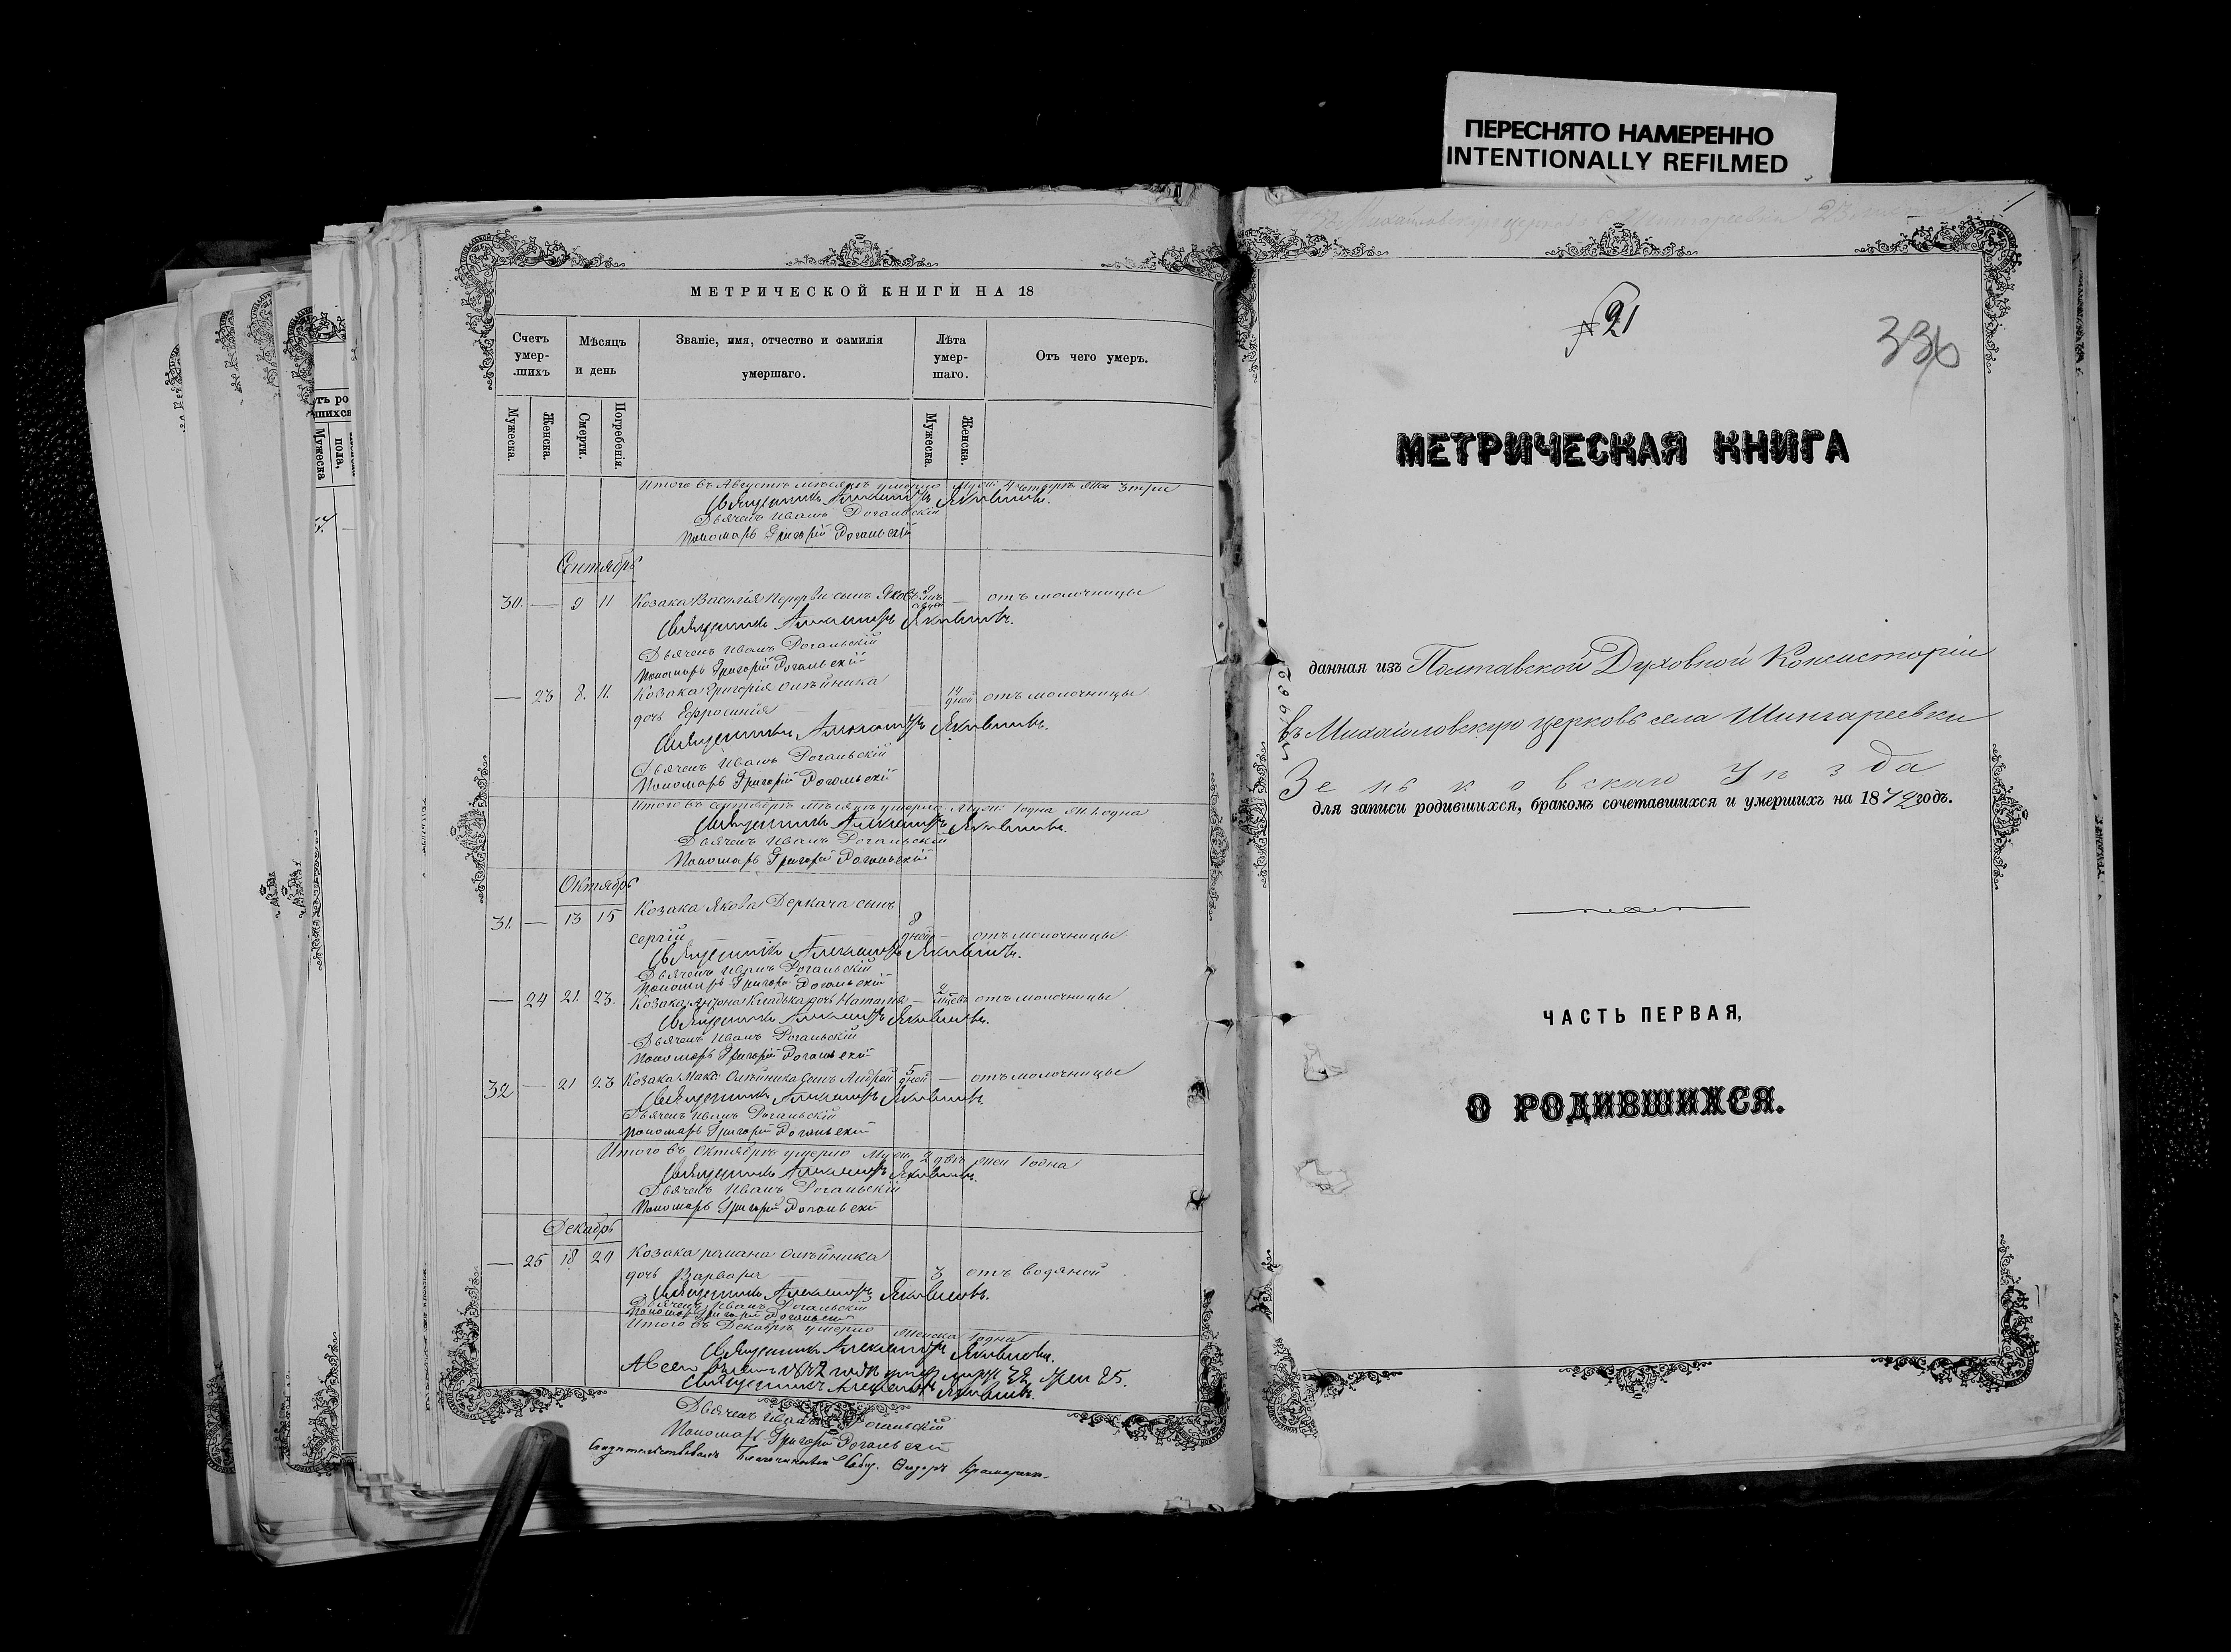 ПЕРЕСНЯТО НАМЕРЕННО
INTENTIONALLY REFILMED
МЕТРИЧЕСКОЙ КНИГИ НА 18
Счетъ умер-шихъ
Мѣсяцъ и день
Званіе, имя, отчество и фамилія умершаго.
Лѣта умер-шаго.
Отъ чего умеръ.
Мужеска.
Женска.
Смерти.
Погребенія.
Мужеска.
Женска.
Итого въ Августѣ мѣсяцѣ умерло Муж: 4 четыре Жен 3 три
Священникъ Александръ Яковлевъ.
Дьячекъ Иванъ Рогальскій
Пономарь Григорій Рогальскій
Сентябрь
30. — 9 11 Козака Василія Перерви сынъ Яковъ — отъ молочницы
Священникъ Александръ Яковлевъ.
Дьячекъ Иванъ Рогальскій
Пономарь Григорій Рогальскій
— 23 8. 11. Козака Григорія Олѣйника
дочь Ефросинія — 14 дней отъ молочницы
Священникъ Александръ Яковлевъ.
Дьячекъ Иванъ Рогальскій
Пономарь Григорій Рогальскій
Итого въ сентябрѣ мѣсяцѣ умерло Муж: 1 одна Ж. 1. одна
Священникъ Александръ Яковлевъ.
Дьячекъ Иванъ Рогальскій
Пономарь Григорій Рогальскій
Октябрь
31. — 13 15 Козака Якова Деркача сынъ
Сергій 8 дней — отъ молочницы
Священникъ Александръ Яковлевъ.
Дьячекъ Иванъ Рогальскій
Пономарь Григорій Рогальскій
— 24 21. 23. Козака Антона дочь Наталія — 2 отъ молочницы
Священникъ Александръ Яковлевъ.
Дьячекъ Иванъ Рогальскій
Пономарь Григорій Рогальскій
32 — 21 23 Козака Макс: Олѣйника сынъ Андрей 5 дней — отъ молочницы
Священникъ Александръ Яковлевъ.
Дьячекъ Иванъ Рогальскій
Пономарь Григорій Рогальскій
Итого въ Октябрѣ умерло Муж. 2 двѣ Жен 1 одна
Священникъ Александръ Яковлевъ.
Дьячекъ Иванъ Рогальскій
Пономарь Григорій Рогальскій
Декабрь
— 25 18 20 Козака романа Олѣйника
дочь Варвара — 3 отъ водяной
Священникъ Александръ Яковлевъ.
Дьячекъ Иванъ Рогальскій
Пономарь Григорій Рогальскій
Итого въ Декабрѣ умерло Женска 1 одна
Священникъ Александръ Яковлевъ.
А всего въ 1872 годѣ умер муж 32 Жен 25.
Священникъ Александръ Яковлевъ.
Дьячекъ Иванъ Рогальскій
Пономарь Григорій Рогальскій
Свидѣтельствовалъ Благочинный Ѳедоръ
№ 21
336
МЕТРИЧЕСКАЯ КНИГА
данная изъ Полтавской Духовной Консисторіи
въ Михайловскую церковь села Шингареевки
Зеньковскаго Уѣзда
для записи родившихся, бракомъ сочетавшихся и умершихъ на 1872 годъ.
ЧАСТЬ ПЕРВАЯ,
О РОДИВШИХСЯ.